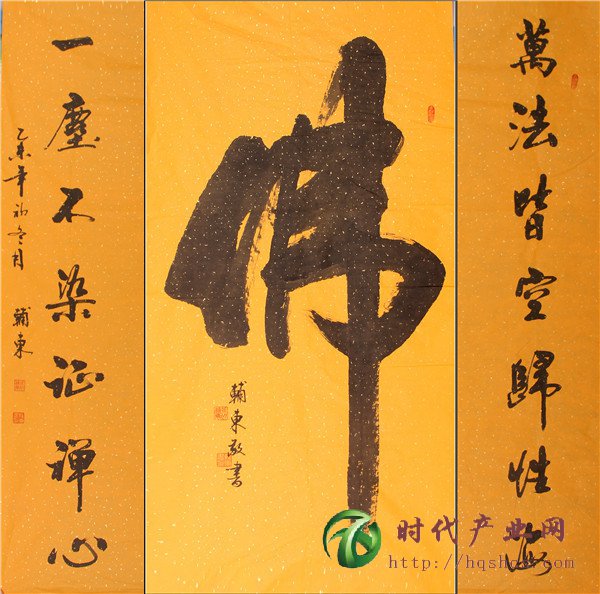 萬法皆空歸性海
佛
輔東敬書
一塵不染证禅心
乙未年初冬月 輔東
时代产业网
http://hqshow.com